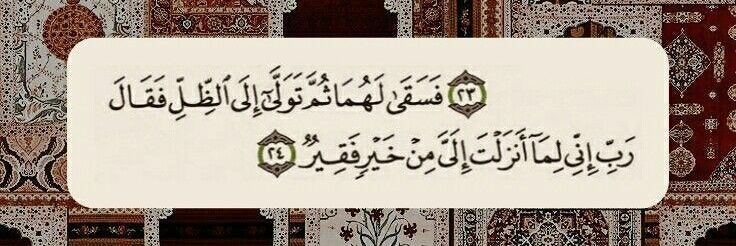 ٢٣ فَسَقَىٰ لَهُمَا ثُمَّ تَوَلَّىٰٓ إِلَى ٱلظِّلِّ فَقَالَ
رَبِّ إِنِّي لِمَآ أَنزَلۡتَ إِلَيَّ مِنۡ خَيۡرٖ فَقِيرٞ ٢٤